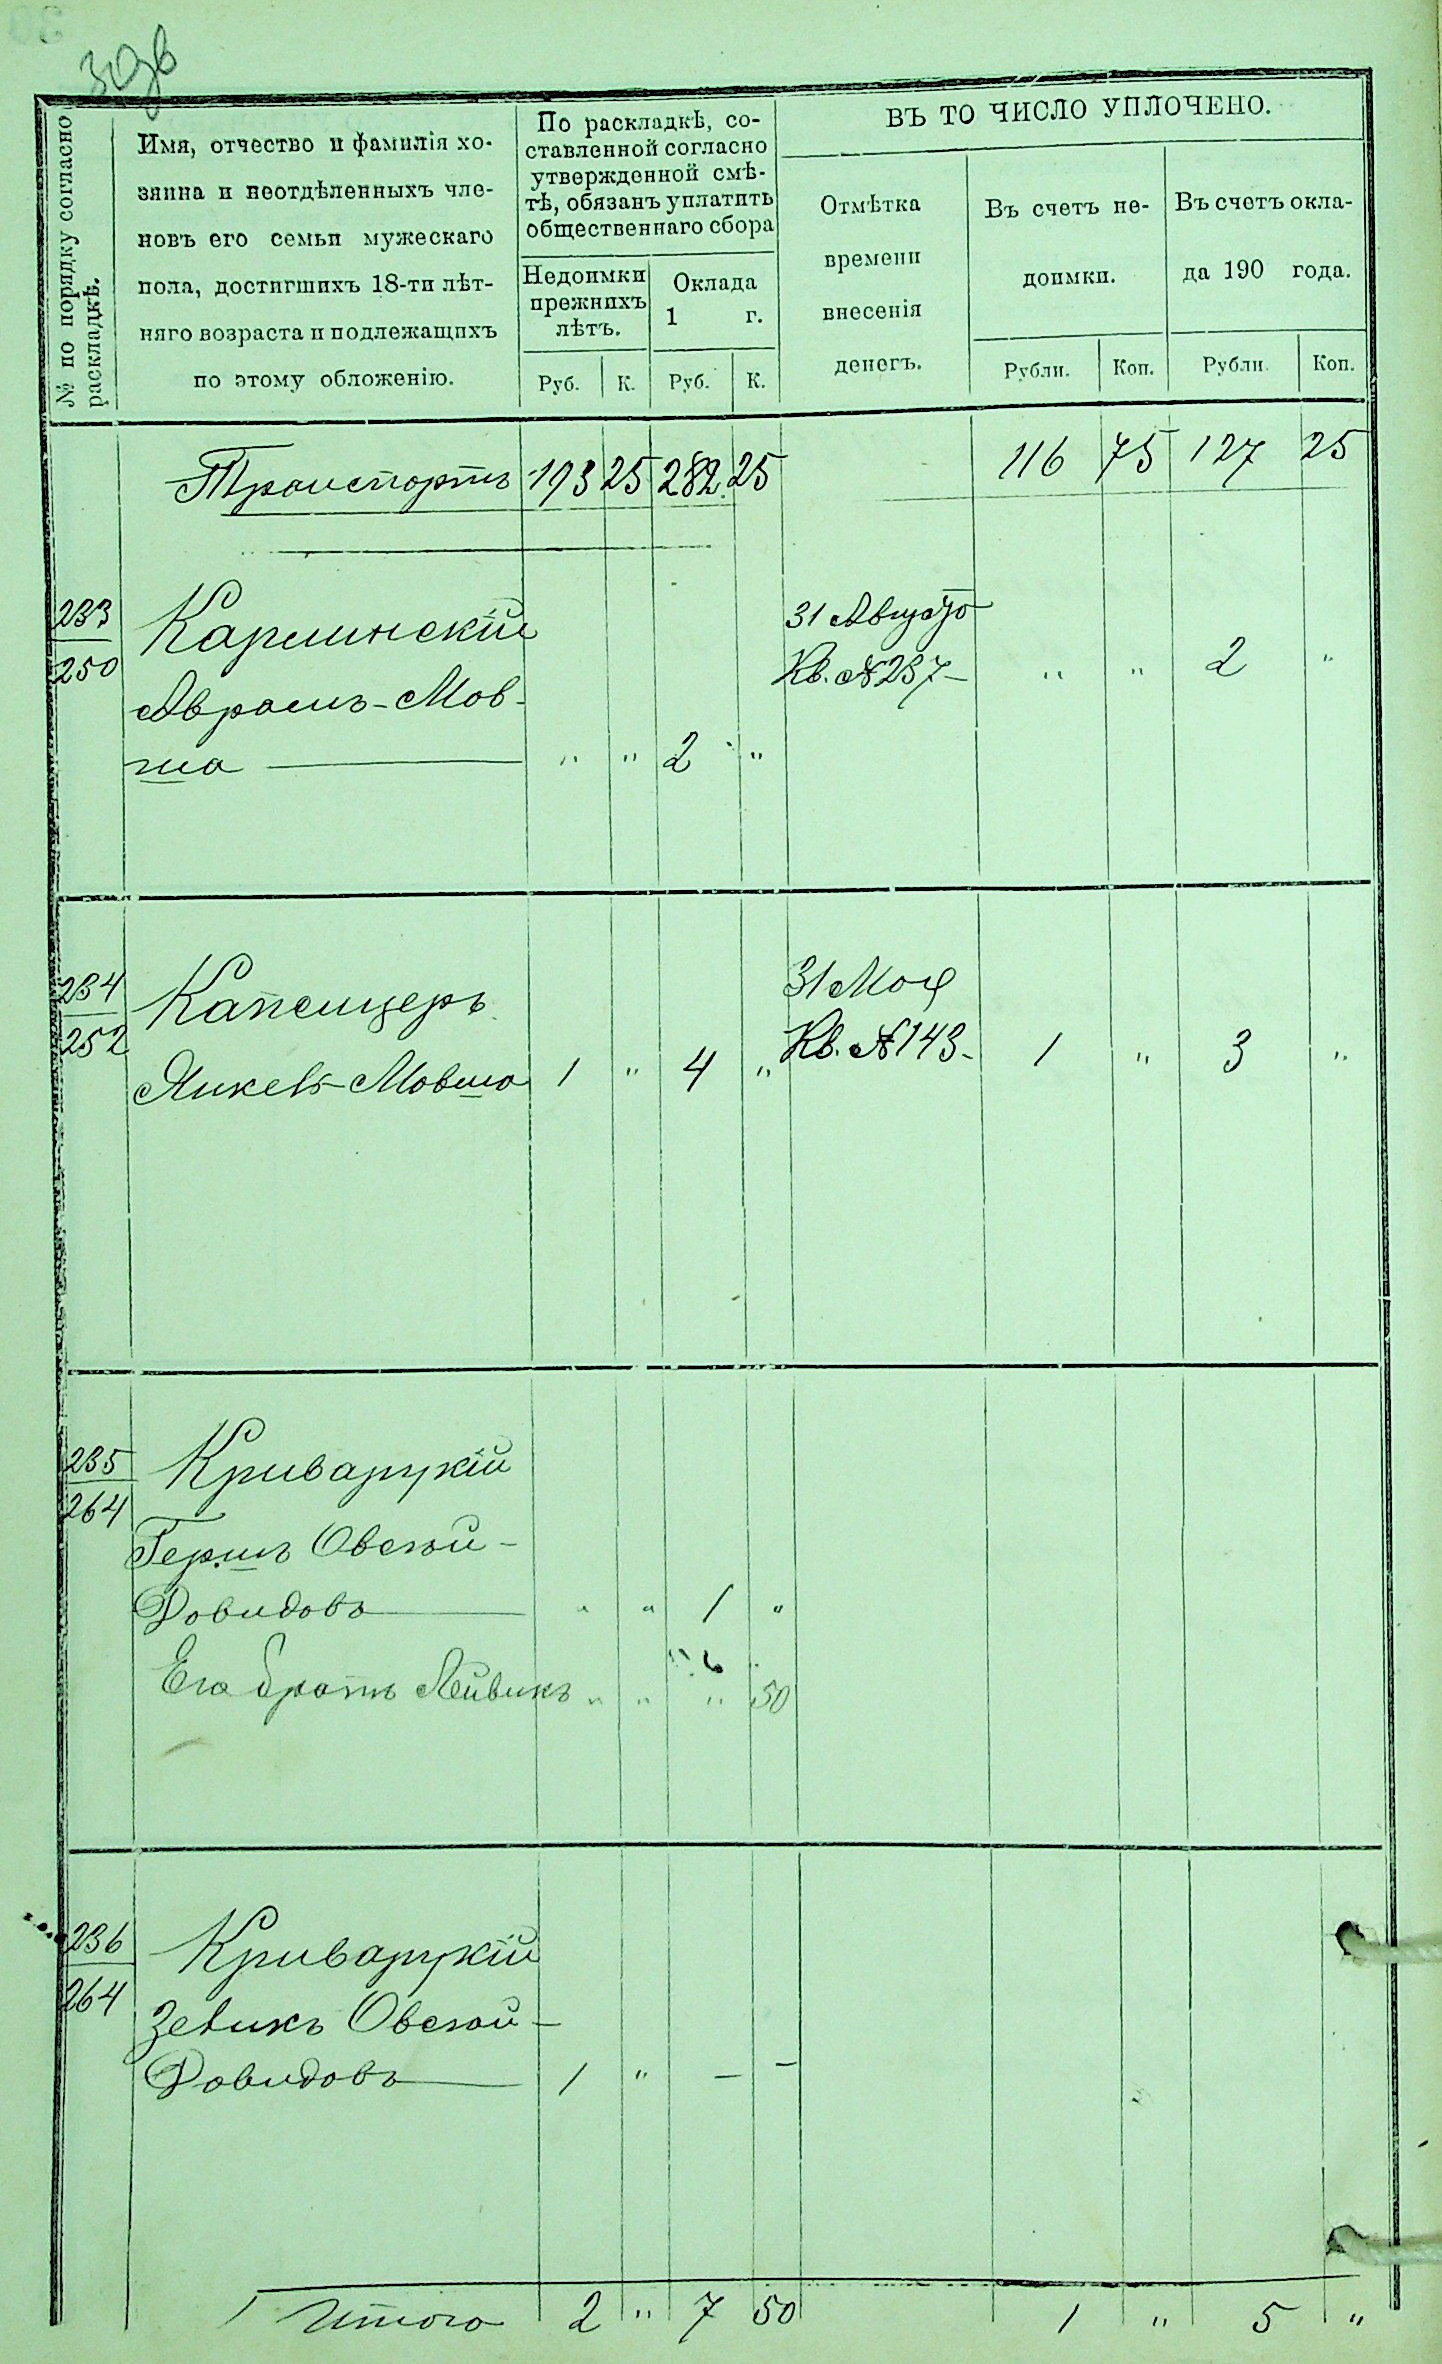 39в
№ по порядку согласно
раскладкѣ.
Имя, отчество и фамилія хо-
зяина и неотдѣленныхъ чле-
новъ его семьи мужескаго
пола, достигшихъ 18-ти лѣт-
няго возраста и подлежащихъ
по этому обложенію.
По раскладкѣ, со-
ставленной согласно
утвержденной смѣ-
тѣ, обязанъ уплатить
общественнаго сбора
Недоимки
прежнихъ
лѣтъ.
Оклада
1 г.
Руб. К. Руб. К.
ВЪ ТО ЧИСЛО УПЛОЧЕНО.
Отмѣтка
времени
внесенія
денегъ.
Въ счетъ не-
доимки.
Въ счетъ окла-
да 190 года.
Рубли. Коп. Рубли. Коп.
Транспортъ 193 25 282 25 116 75 127 25
233
250
Карлинскій
Авромъ-Мов-
ша " " 2 "
31 Августо
Кв. № 237 " " 2 "
234
252
Капсицеръ
Янкель-Мовшо 1 " 4 "
31 Мая
Кв. № 143 1 " 3 "
235
264
Криварукій
Гершъ Овсѣй-
Довидовъ " " 1 "
Его братъ Лейвикъ " " " 50
236
264
Криварукій
Зеликъ Овсѣй-
Довидовъ 1 " — —
Итого 2 " 7 50 1 " 5 "